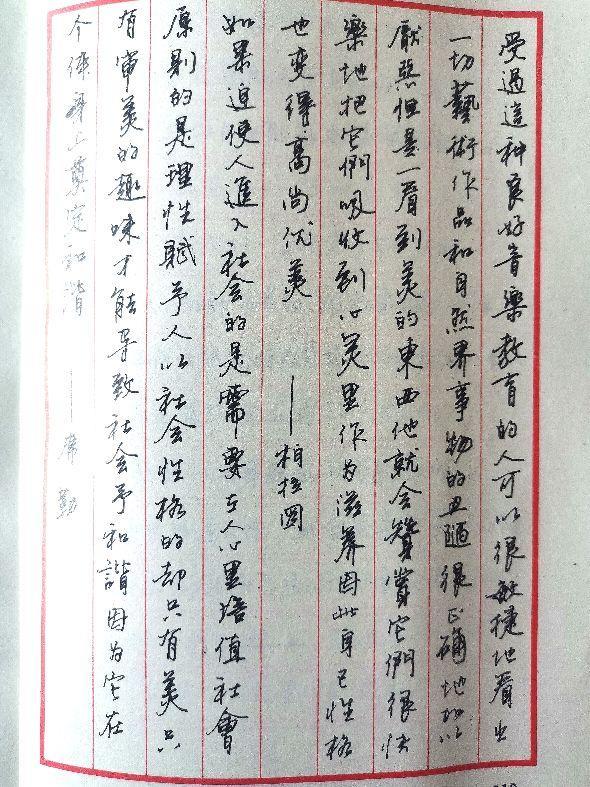 受過這种良好音樂教育的人可以很敏捷地看出
一切藝術作品和自然界事物的丑陋很正确地加以
厭惡但是一看到美的東西他就会贊賞它們很快
樂地把它們吸收到心灵里作为滋养因此自己性格
也变得高尚优美 ——柏拉圖
如果迫使人進入社会的是需要在人心里培值社會
原則的是理性賦予人以社会性格的却只有美只
有审美的趣味才能导致社会予和諧因为它在
个体身上奠定和谐 ——席勒